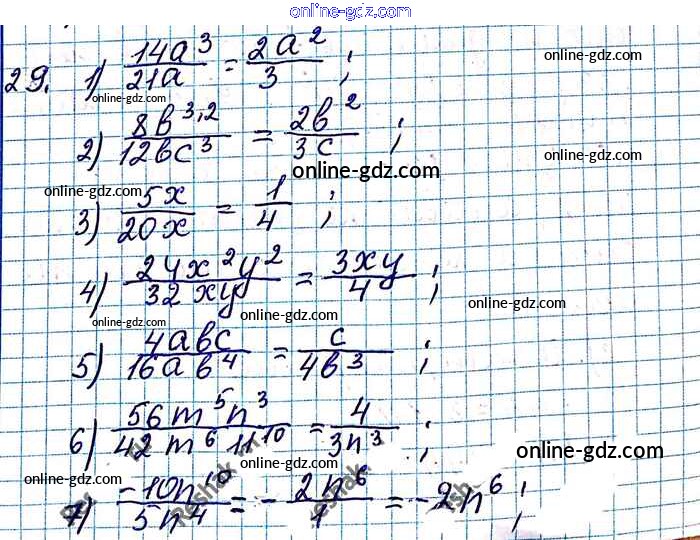 online-gdz.com
29. 1) 14a³/21a = 2a²/3 ; online-gdz.com
online-gdz.com
2) 8b³˒²/12bc³ = 2b²/3c ; online-gdz.com
online-gdz.com online-gdz.com
3) 5x/20x = 1/4 ; online-gdz.com
4) 24x²y²/32xy = 3xy/4 ; online-gdz.com
online-gdz.com online-gdz.com
5) 4abc/16ab⁴ = c/4b³ ; online-gdz.com
6) 56m⁵n³/42m⁶n¹⁰ = 4/3n³ ; online-gdz.com
online-gdz.com online-gdz.com
7) -10n¹⁰/5n⁴ = - 2n⁶/1 = -2n⁶ ;